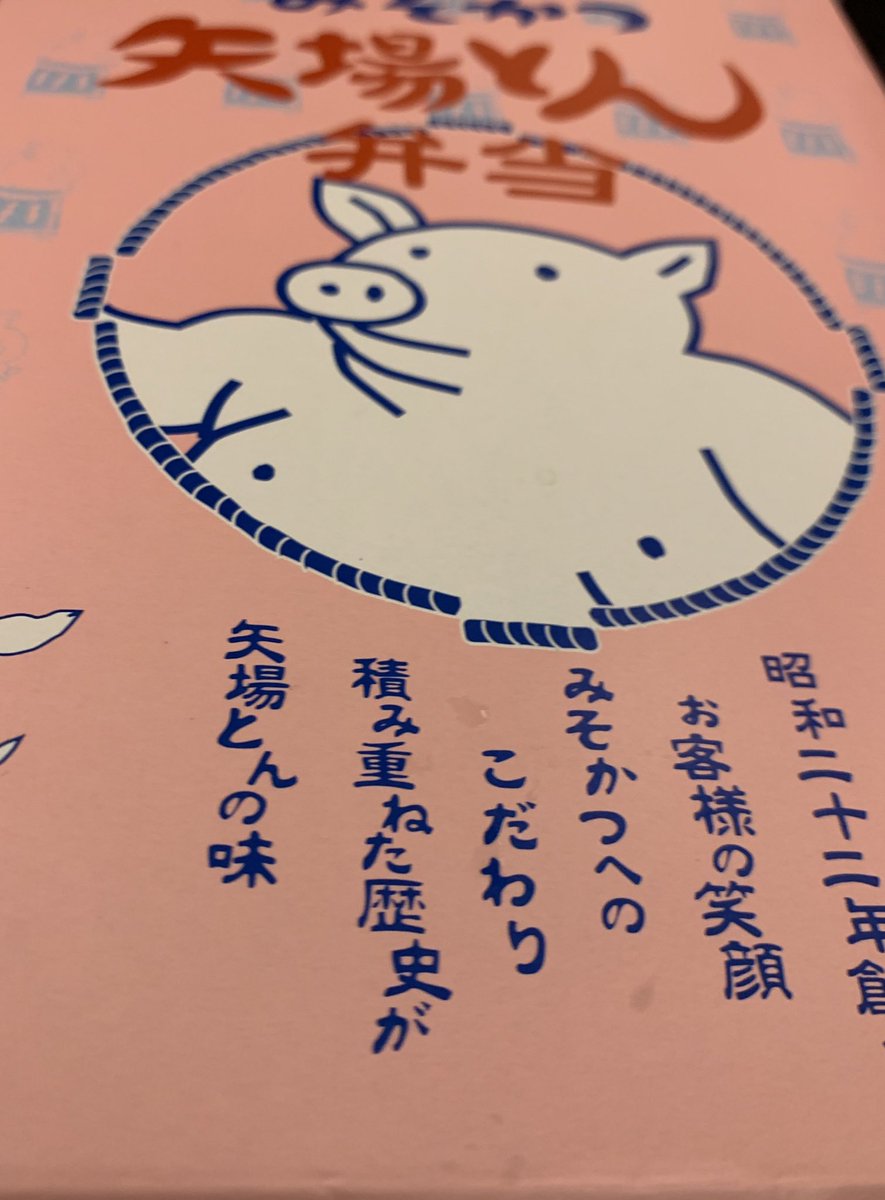 みそかつ
矢場とん
弁当
昭和二十二年創
お客様の笑顔
みそかつへの
こだわり
積み重ねた歴史が
矢場とんの味